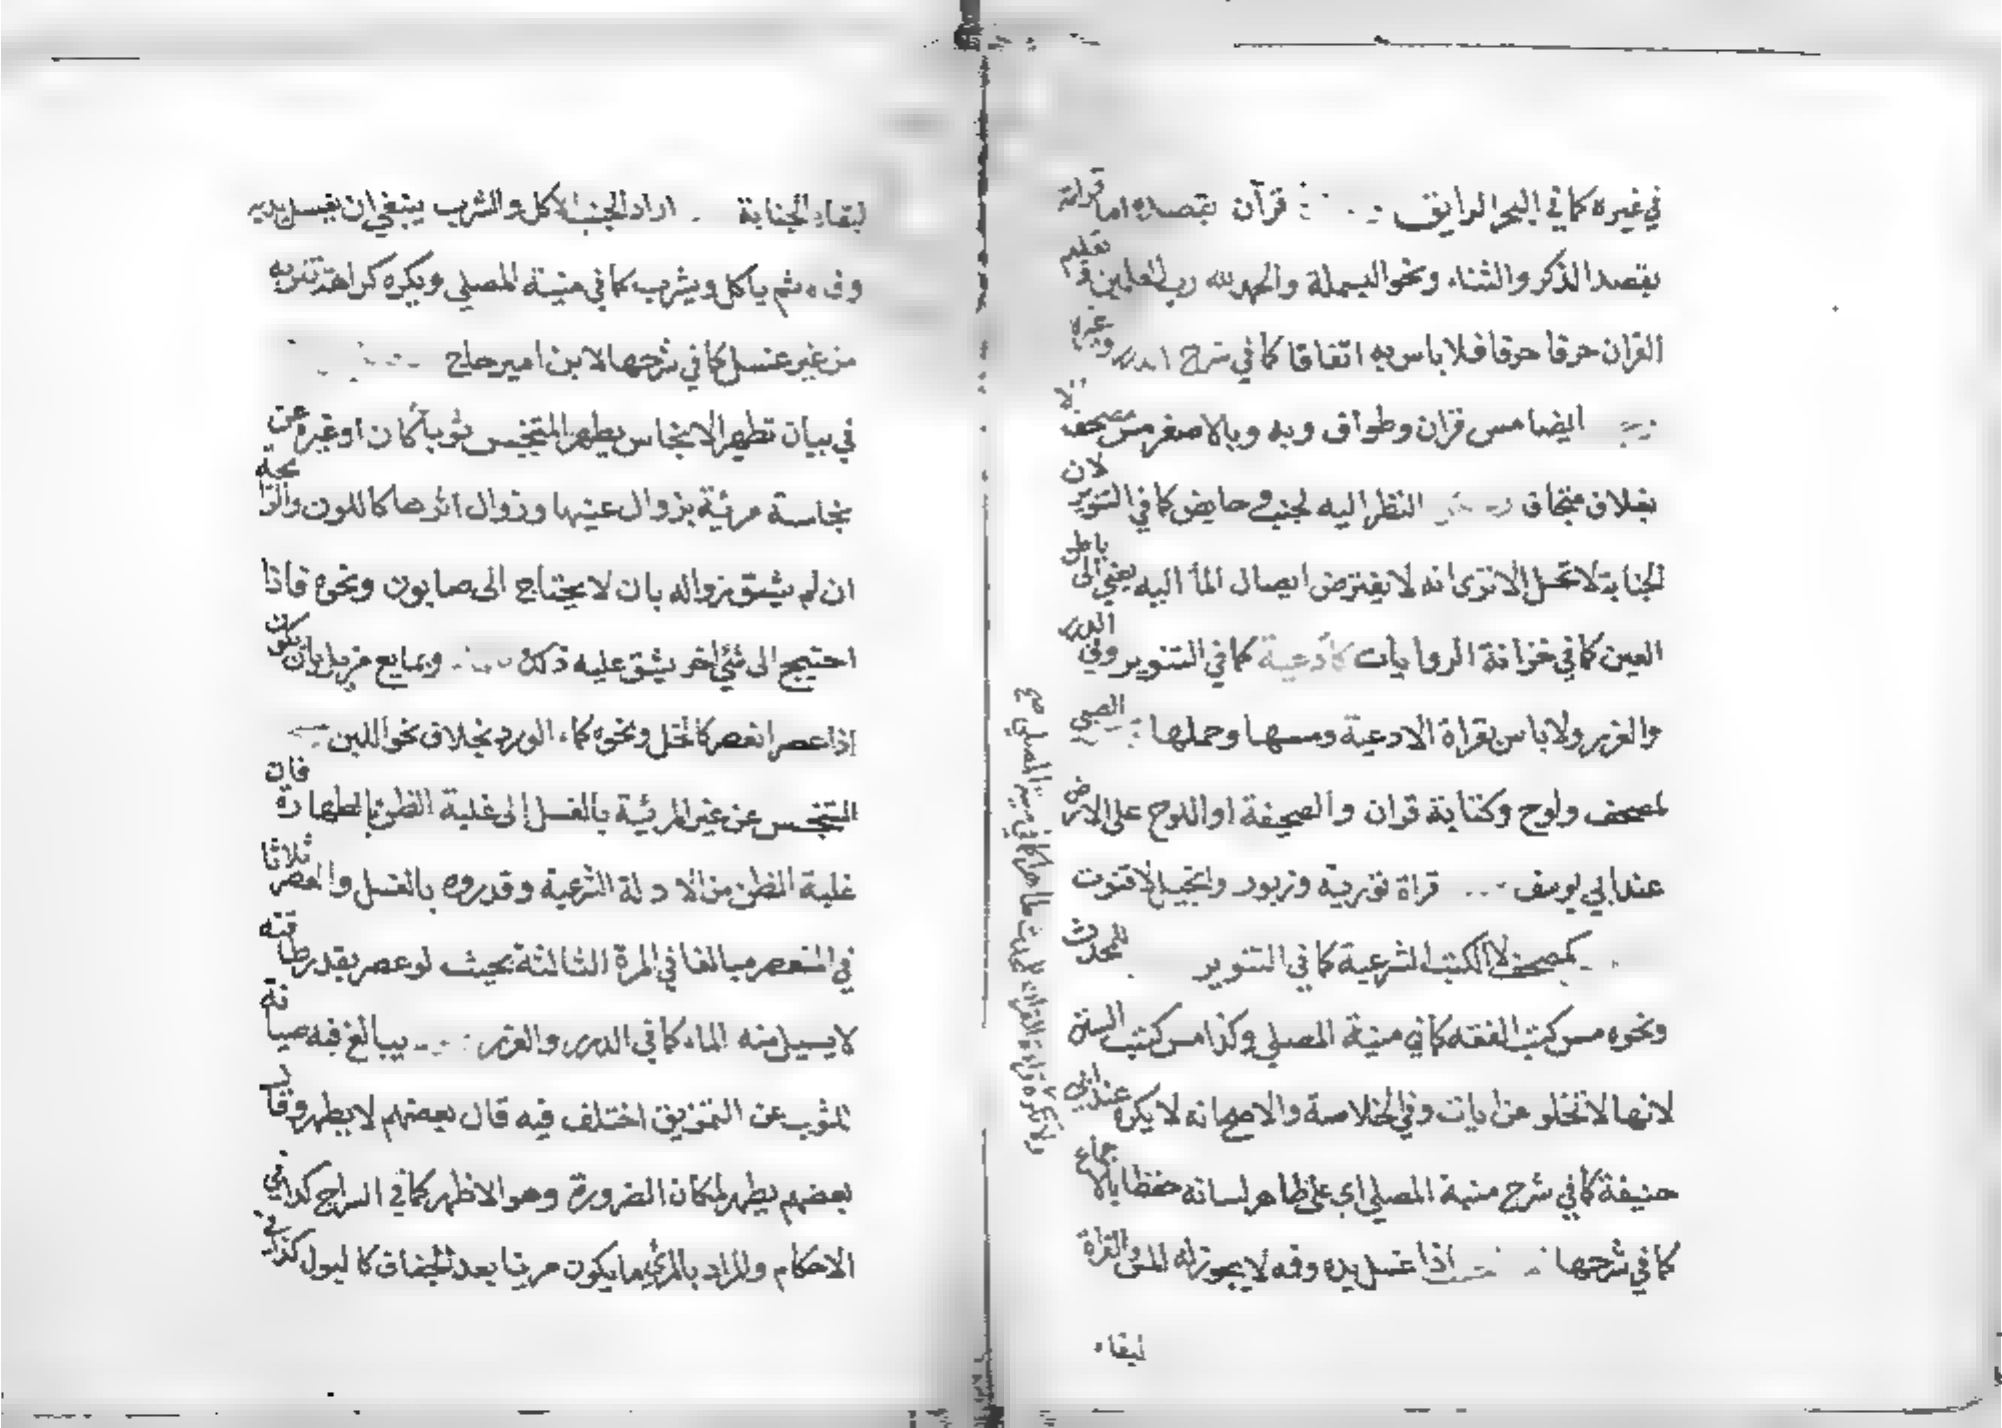 في غيره كما في البحر الرايق قرآن بقصده اما قراته
بقصد الذكر والثناء ونحو البسملة والحمد لله رب العلمين وتعليم
القران حرفا حرفا فلا باس به اتفاقا كما في شرح وغيره
ايضا مس قران وطواف وبه وبالاصغر مس مصحف الا
بغلاف متجاف النظر اليه لجنب وحايض كما في التنوير لان
الجنابة لا تحل الا ترى انه لا يفترض ايصال الماء اليه يعني الى
العين كما في خزانة الروايات كأدعية كما في التنوير وفي الدرر
والغرر ولا باس بقراة الادعية ومسها وحملها الصبي
لمصحف ولوح وكتابة قران والصحيفة او اللوح على الارض
عند ابي يوسف قراة تورية وزبور وانجيل لا قنوت
كمصحف لا الكتب الشرعية كما في التنوير للمحدث
ونحوه مس كتب الفقه كما في منية المصلي وكذا مس كتب السنن
لانها لا تخلو عن ايات وفي الخلاصة والاصح انه لا يكره عند ابي
حنيفة كما في شرح منية المصلي اي على ظاهر لسانه حفظا بالاجماع
كما في شرحها اذا غسل يده وفه لا يجوز له المس والقراة
لبقاء
ولا تكره قراءة القران للمحدث ظاهرا كما في منية المصلي صح
لبقاء الجنابة اراد الجنب الاكل والشرب ينبغي ان يغسل يديه
وفاه ثم ياكل ويشرب كما في منية المصلي ويكره كراهة تنزيه
من غير غسل كما في شرحها لابن امير حاج
في بيان تطهير الانجاس يطهر المتنجس ثوبا كان او غيره عن
نجاسة مرئية بزوال عينها وزوال اثرها كاللون والرائحة
ان لم يشق زواله بان لا يحتاج الى صابون ونحوه فاذا
احتيج الى شئ اخر يشق عليه ذلك وبمايع مزيل بان يكون
اذا عصر انعصر كالخل ونحوه كماء الورد بخلاف نحو اللبن
المتنجس عن غير المرئية بالغسل الى غلبة الظن بالطهارة فان
غلبة الظن من الادلة الشرعية وقدروه بالغسل والعصر ثلاثا
في المنعصر مبالغا في المرة الثالثة بحيث لو عصر بقدر طاقته
لا يسيل منه الماء كما في الدرر والغرر يبالغ فيه صيانة
للثوب عن التمزيق اختلف فيه قال بعضهم لا يطهر وقال
بعضهم يطهر لمكان الضرورة وهو الاظهر كما في السراج كذا في
الاحكام والمراد بالمرئي ما يكون مريئا بعد الجفاف كالبول كذا في